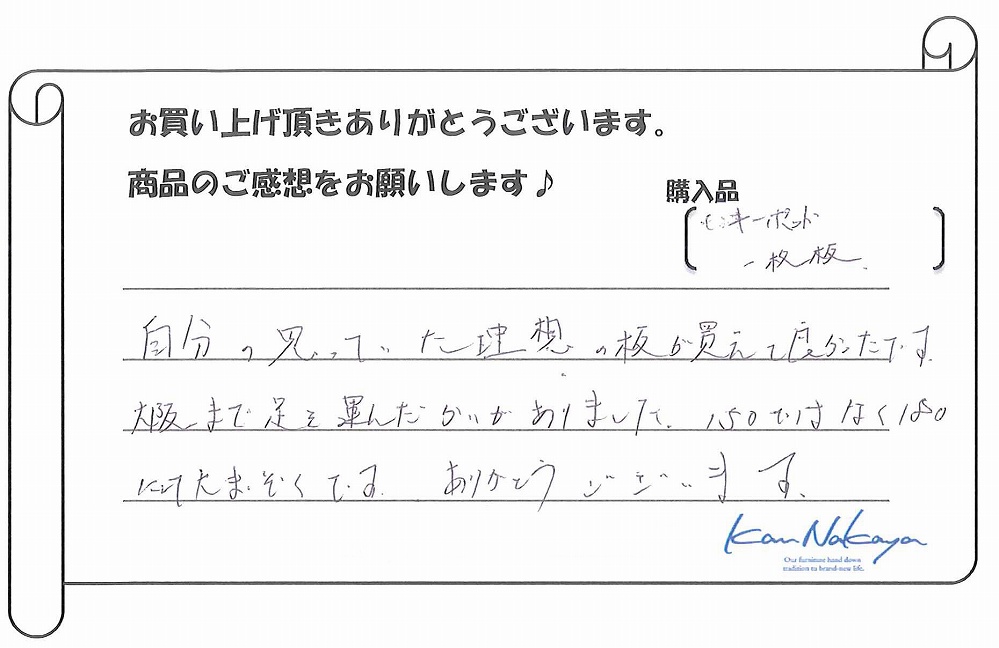 お買い上げ頂きありがとうございます。
商品のご感想をお願いします♪
購入品
モンキーポッド
一枚板.
自分の思っていた理想の板が買えて良かったです。
大阪まで足を運んだかいがありました。150ではなく180
にして大まんぞくです。ありがとうございます。
Kan Nakaya
Our furniture hand down
tradition to brand-new life.